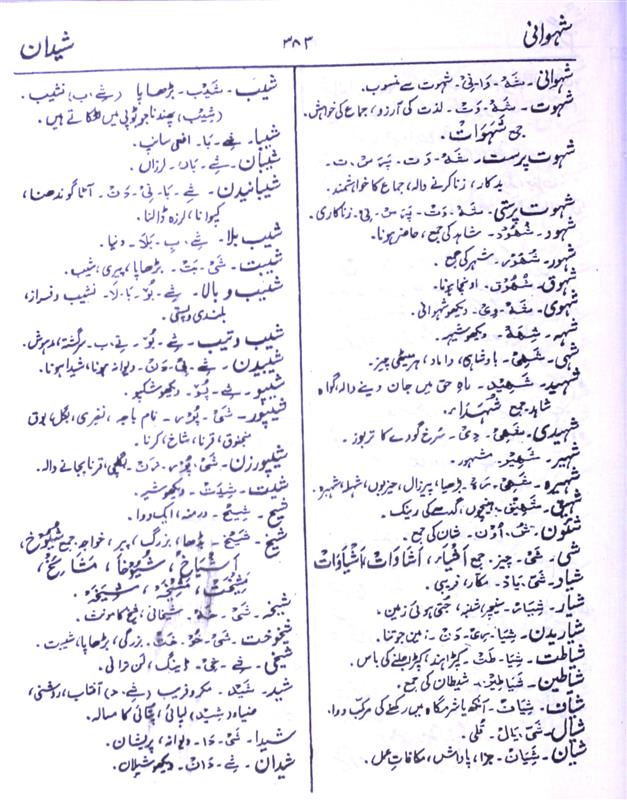 شہوانی
۳۸۳
شیدان
شہوانی۔ شَہ۔ وَا۔ نِیْ۔ شہوت سے منسوب۔
شہوت۔ شَہ۔ وَتْ۔ لذت کی آرزو، جماع کی خواہش۔
جمع شَہَوَات۔
شہوت پرست۔ شَہ۔ وَت۔ پَ۔ رَسْ۔ ت۔
بدکار، زنا کرنے والہ، جماع کا خواہشمند۔
شہوت پرستی۔ شَہ۔ وَتْ۔ پَ۔ رَسْ۔ تِیْ۔ زناکاری۔
شہود۔ شُہُوْد۔ شاہد کی جمع، حاضر ہونا۔
شہور۔ شُہُوْر۔ شہر کی جمع۔
شہوق۔ شُہُوْق۔ اونچا ہونا۔
شہوی۔ شَہ۔ وِیْ۔ دیکھو شہوانی۔
شہہ۔ دیکھو شیہہ۔
شہی۔ شَہِیْ۔ بادشاہی، داماد، ہر میٹھی چیز۔
شہید۔ شَہِیْد۔ راہِ حق میں جان دینے والہ، گواہ
شاہد جمع شُہَدَاء۔
شہیدی۔ شَہِیْ۔ دِیْ۔ سرخ گودے کا تربوز۔
شہیر۔ شَہِیْر۔ مشہور۔
شہیرہ۔ شَہِیْ۔ رَہ۔ بڑھیا، پیرزال،
شہیق۔ شَہِیْق۔ گدھے کی رینک۔
شئون۔ شُ۔ اُوْن۔ شان کی جمع۔
شی۔ شَیْ۔ چیز۔ جمع اَشْیَاء، اَشَاوَات، اَشْیَاوَاتْ
شیاد۔ شَیْ۔ یَاد۔ مکار، فریبی۔
شیار۔ شِیَار۔ سنیچر، شنبہ، جتی ہوئی زمین۔
شیاریدن۔ شِیَا۔ رِیْ۔ دَنْ۔ زمین جوتنا۔
شیاطت۔ شِیَا۔ طَتْ۔ کپڑا جلنے کی باس۔
شیاطین۔ شَیَاطِیْن۔ شیطان کی جمع۔
شیاف۔ شِیَافْ۔ آنکھ یا شرمگاہ میں رکھنے کی مرکب دوا۔
شیال۔ شَیْ۔ یَالْ۔ قلی۔
شیان۔ شِیَان۔ جزا، پاداش، مکافاتِ عمل۔
شیب۔ شَیْب۔ بڑھاپا (شے، ب) نشیب۔
(شِیْب) چندنا جو ٹوپی میں لٹکاتے ہیں۔
شیبا۔ شے۔ بَا۔ افعی سانپ۔
شیبان۔ شے۔ بَان۔ لرزاں۔
شیبانیدن۔ شے۔ بَا۔ نِیْ۔ دَنْ۔ آٹا گوندھنا،
لرزہ ڈالنا۔
شیب بلا۔ شے۔ بِ۔ بَلَا۔ دنیا۔
شیبت۔ شَیْ۔ بَتْ۔ بڑھاپا، پیری، شیب۔
شیب و بالا۔ شے۔ بُوْ۔ بَا۔ لَا۔ نشیب و فراز،
بلندی و پستی۔
شیب و تیب۔ شے۔ بُوْ۔ تے۔ ب۔ سرگشتہ، مدہوش۔
شیبیدن۔ شے۔ بِیْ۔ دَنْ۔ دیوانہ ہونا، شیدا ہونا۔
شیپو۔ شے۔ پُوْ۔ دیکھو شکیو۔
شیپور۔ شَیْ۔ پُوْر۔ نام باجہ، نفیری، بگل، بوق
قرنا، شاخ، کرنا۔
شیپورزن۔ شَیْ۔ پُوْر۔ زَنْ۔ بگلچی، قرنا بجانے والہ۔
شیت۔ شِیْت۔ دیکھو شیر۔
شیح۔ شِیْح۔ درمنہ، ایک دوا۔
شیخ۔ شَیْخ۔ بڑھا، بزرگ، پیر، خواجہ جمع شُیُوْخ،
اَشْیَاخْ، شُیُوْخاً، مَشَائِخْ،
مَشِیْخَتْ، مَشْیَخَہ، شِیْخَہ۔
شیخہ۔ شَیْ۔ خَہ۔ شیخانی، شیخ کا مونث۔
شیخوخت۔ شَیْ۔ خُوْ۔ خَتْ۔ بزرگی، بڑھاپا، شیبت۔
شیخی۔ شے۔ خِیْ۔ ڈینگ، لن ترانی۔
شید۔ شَیْد۔ مکر و فریب (شے۔ د) آفتاب، روشنی،
ضیاء (شِیْد) لپائی، چنائی کا مسالہ۔
شیدا۔ شَیْ۔ دَا۔ دیوانہ، پریشان۔
شیدان۔ شے۔ دَانْ۔ دیکھو شیلان۔